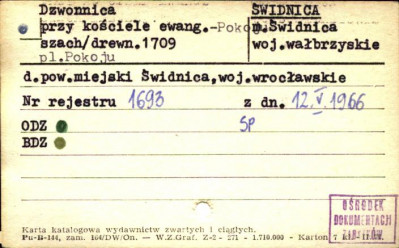 Dzwonnica
przy kościele ewang.-Pokoju
szach/drewn.1709
pl.Pokoju
ŚWIDNICA
m.Świdnica
woj.wałbrzyskie
d.pow.miejski Świdnica,woj.wrocławskie
Nr rejestru 1693 z dn. 12.V.1966
ODZ SP
BDZ
OŚRODEK
DOKUMENTACJI
Karta katalogowa wydawnictw zwartych i ciągłych.
Pu-B-144, zam. 104/DW/On. — W.Z.Graf. Z-2 - 271 - 1.710.000 - Karton